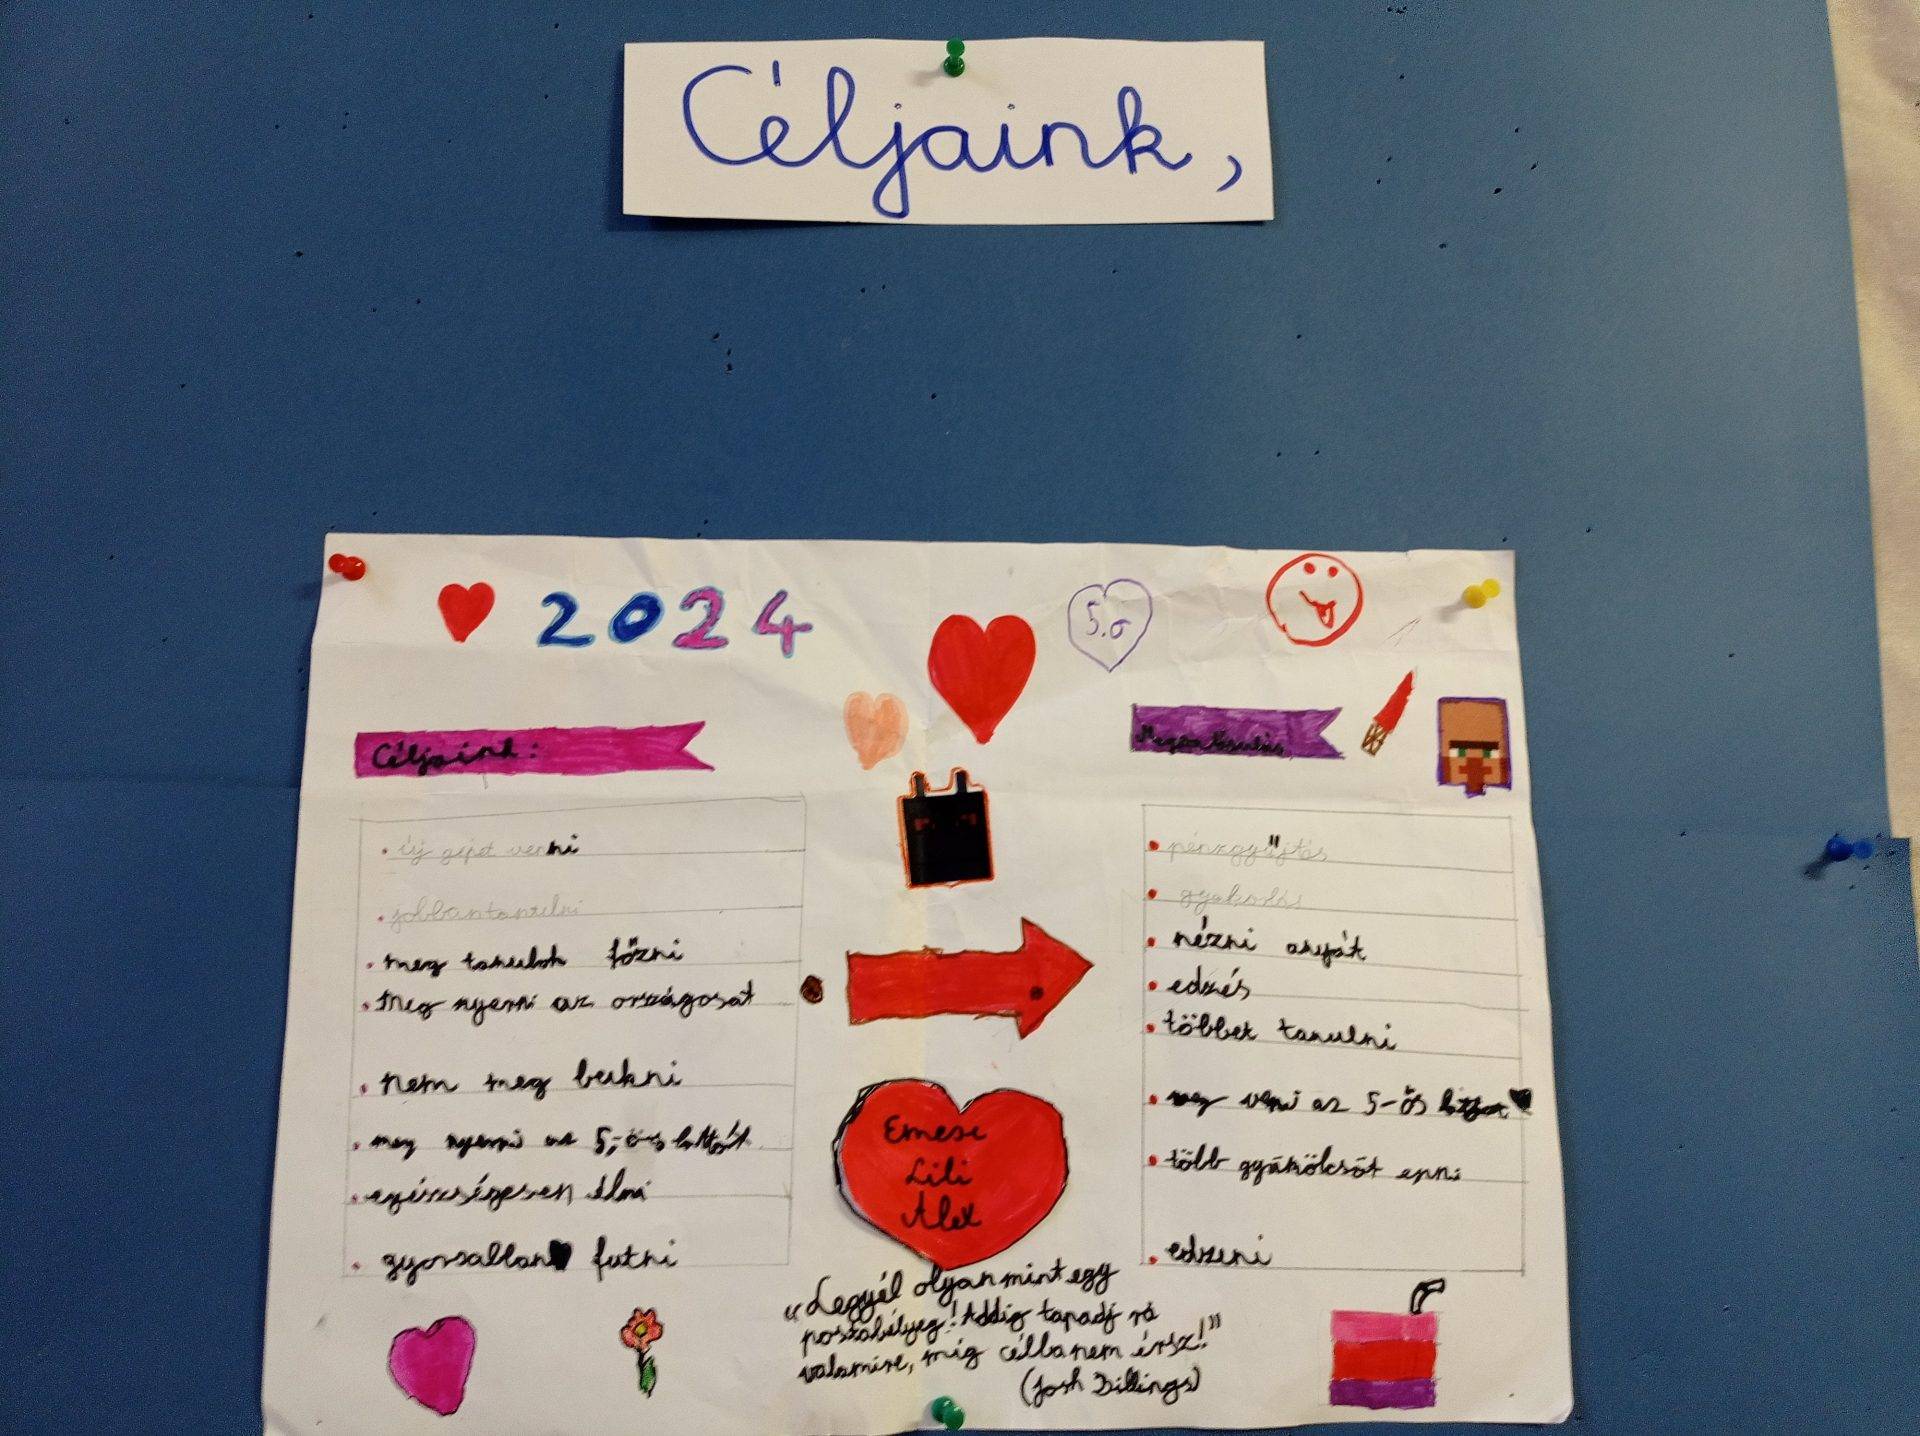 Céljaink,
2024
5.o
Céljaink:
Megvalósulás
új gépet venni
jobban tanulni
meg tanulok főzni
meg nyerni az országosat
nem meg bukni
meg nyerni az 5-ös lottót
egészségesen élni
gyorsabban futni
pénzgyűjtés
gyakorlás
nézni anyját
edzés
többet tanulni
meg venni az 5-ös
több gyümölcsöt enni
edzeni
Emese
Lili
Alex
„Legyél olyan mint egy
postabélyeg! Addig tapadj rá
valamire, míg célba nem érsz!"
(Josh Billings)